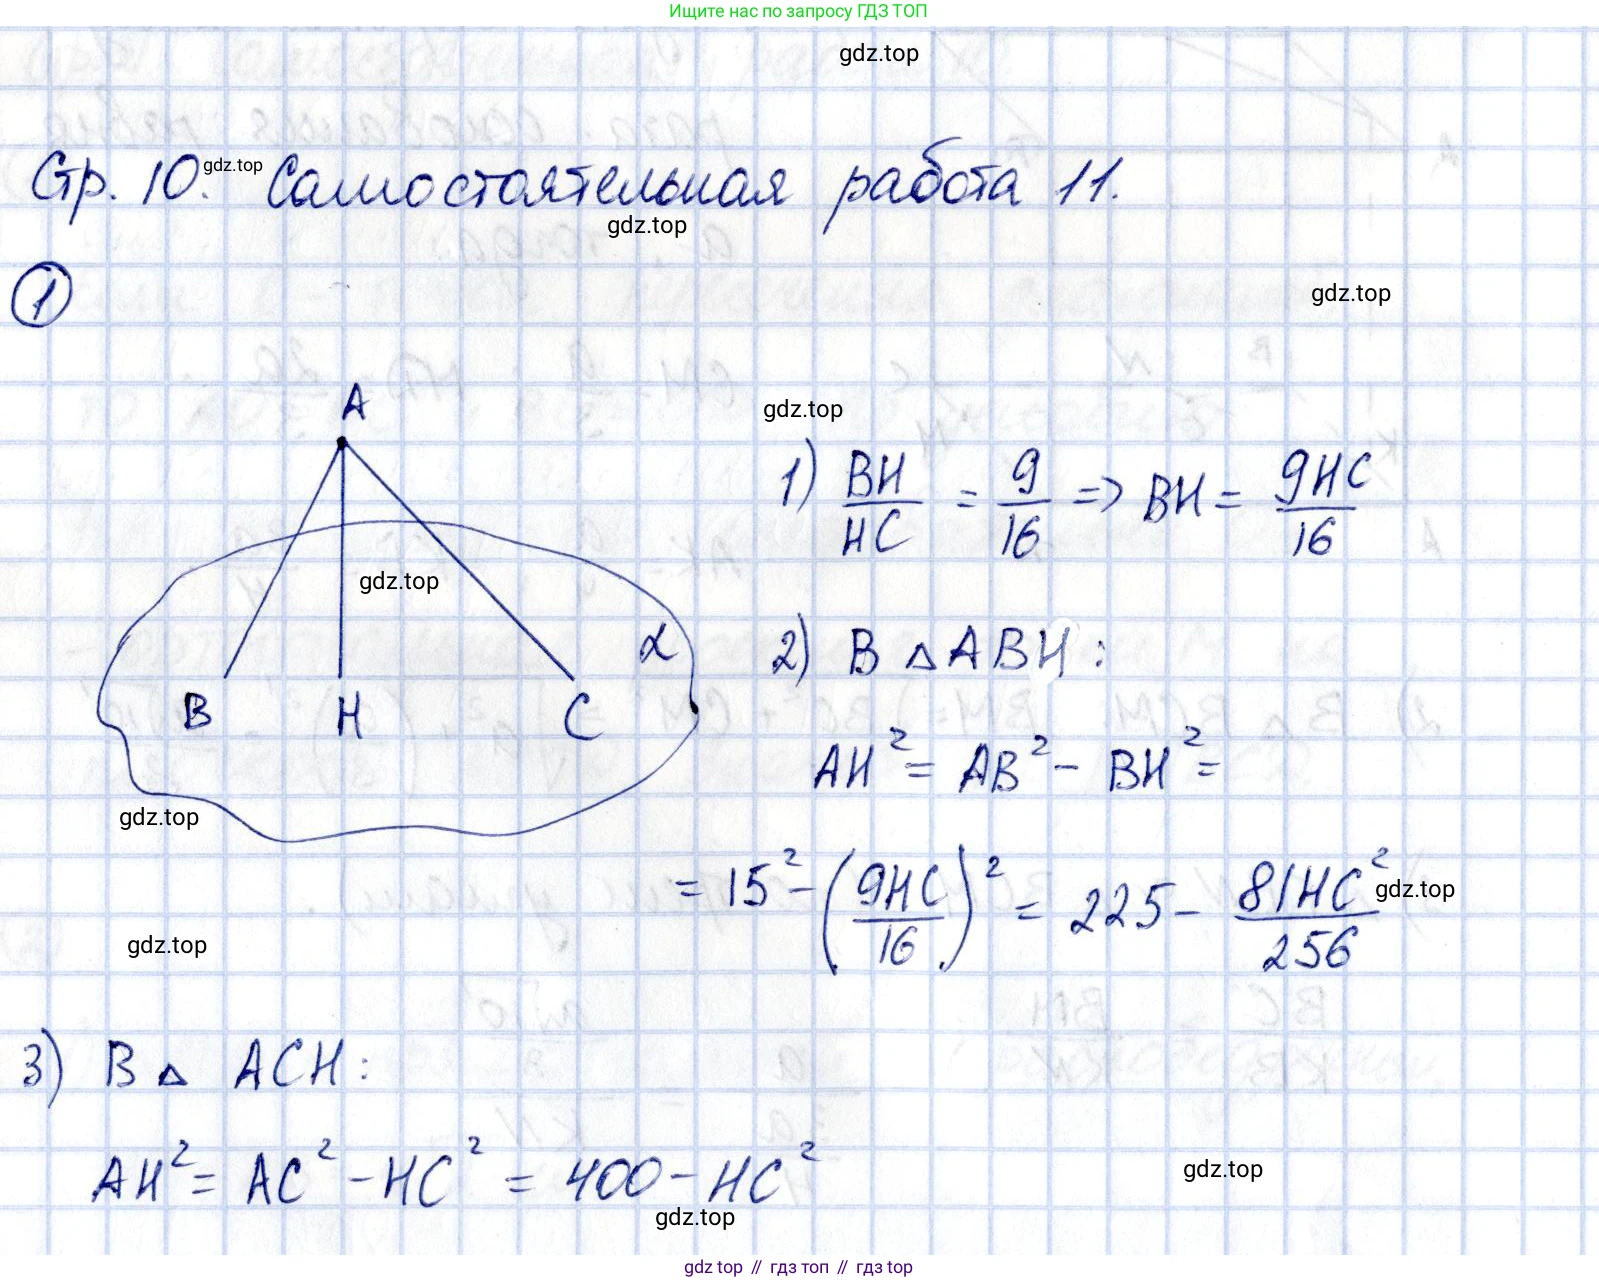 Ищите нас по запросу ГДЗ ТОП
gdz.top
Стр. 10. gdz.top Самостоятельная работа 11.
gdz.top
1
gdz.top
A
gdz.top
1) BH/HC = 9/16 => BH = 9HC/16
gdz.top
α
2) В △ ABH:
B H C
AH² = AB² - BH² =
gdz.top
= 15² - (9HC/16)² = 225 - 81HC²/256
gdz.top
gdz.top
3) В △ ACH:
AH² = AC² - HC² = 400 - HC²
gdz.top
gdz.top
gdz top // гдз топ // гдз top